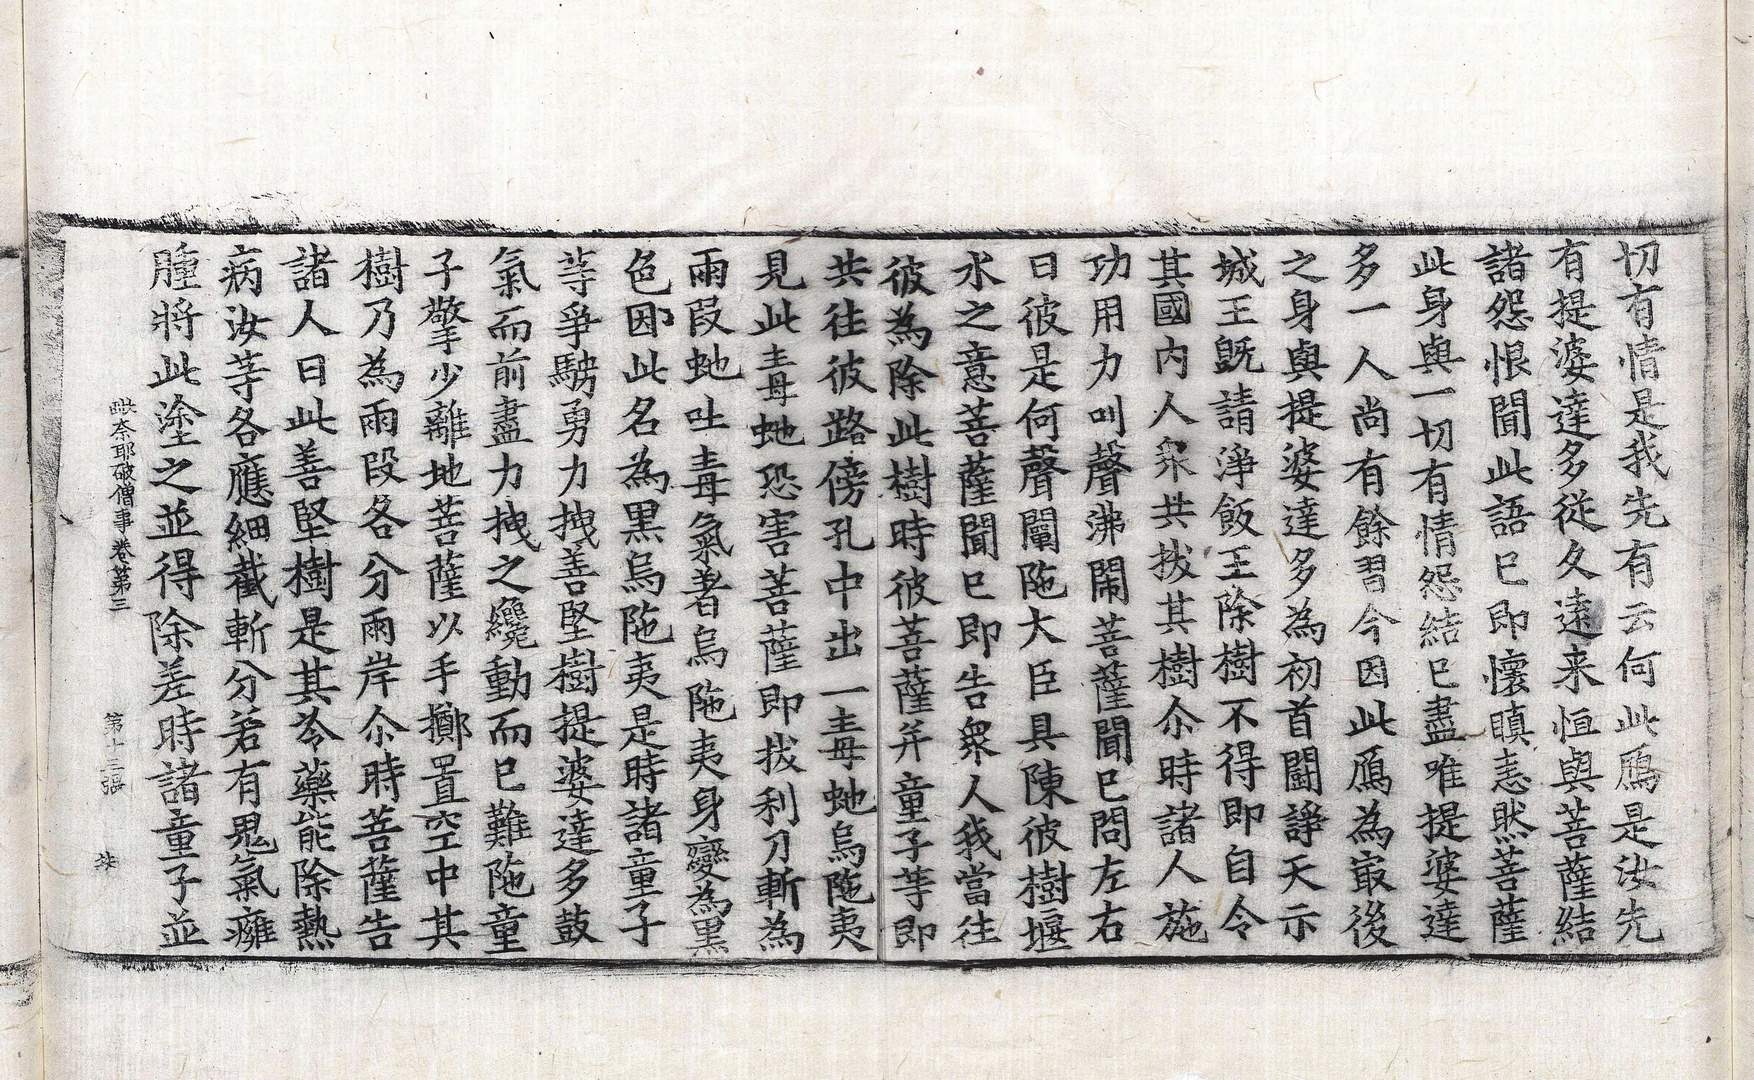 切有情是我先有云何此鴈是汝先
有提婆達多從久遠来恒與菩薩結
諸怨恨聞此語已即懷瞋恚然菩薩
此身與一切有情怨結已盡唯提婆達
多一人尚有餘習今因此鴈為㝡後
之身與提婆達多為初首鬪諍天示
城王旣請淨飯王除樹不得即自令
其國內人衆共拔其樹尒時諸人施
功用力叫聲沸閙菩薩聞已問左右
曰彼是何聲闡陁大臣具陳彼樹堰
水之意菩薩聞已即告衆人我當往
彼為除此樹時彼菩薩并童子等即
共往彼路傍孔中出一毒虵烏陁夷
見此毒虵恐害菩薩即拔利刀斬為
兩段虵吐毒氣著烏陁夷身變為黒
色因此名為黒烏陁夷是時諸童子
等爭騁勇力拽善堅樹提婆達多鼓
氣而前盡力拽之纔動而已難陁童
子擎少離地菩薩以手擲置空中其
樹乃為兩段各分兩岸尒時菩薩告
諸人曰此善堅樹是其冷藥能除熱
病汝等各應細截斬分若有鬼氣癰
腫將此塗之並得除差時諸童子並
毗奈耶破僧事卷第三 第十三張